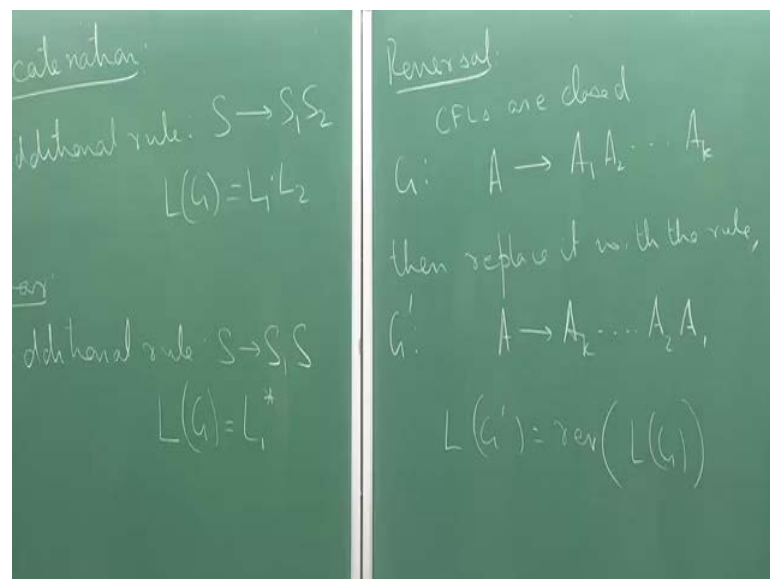 catenation:
dditional rule: S → S₁S₂
L(G) = L₁·L₂
ar
dditional rule: S → S₁S
L(G) = L₁*
Reversal:
CFLs are closed
G: A → A₁ A₂ ··· Aₖ
then replace it with the rule,
G': A → Aₖ ···· A₂ A₁
L(G') = rev(L(G))